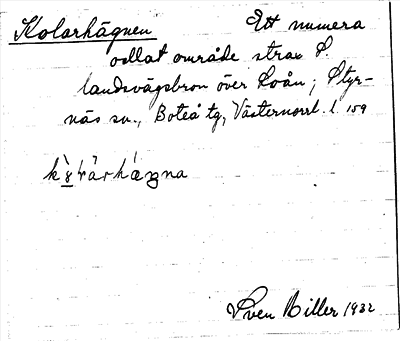 Kolarhägnen Ett numera
odlat område strax S.
landsvägsbron över Loån; Styr-
näs sn., Boteå tg, Västernorrl. l. 159
Sven Biller 1932